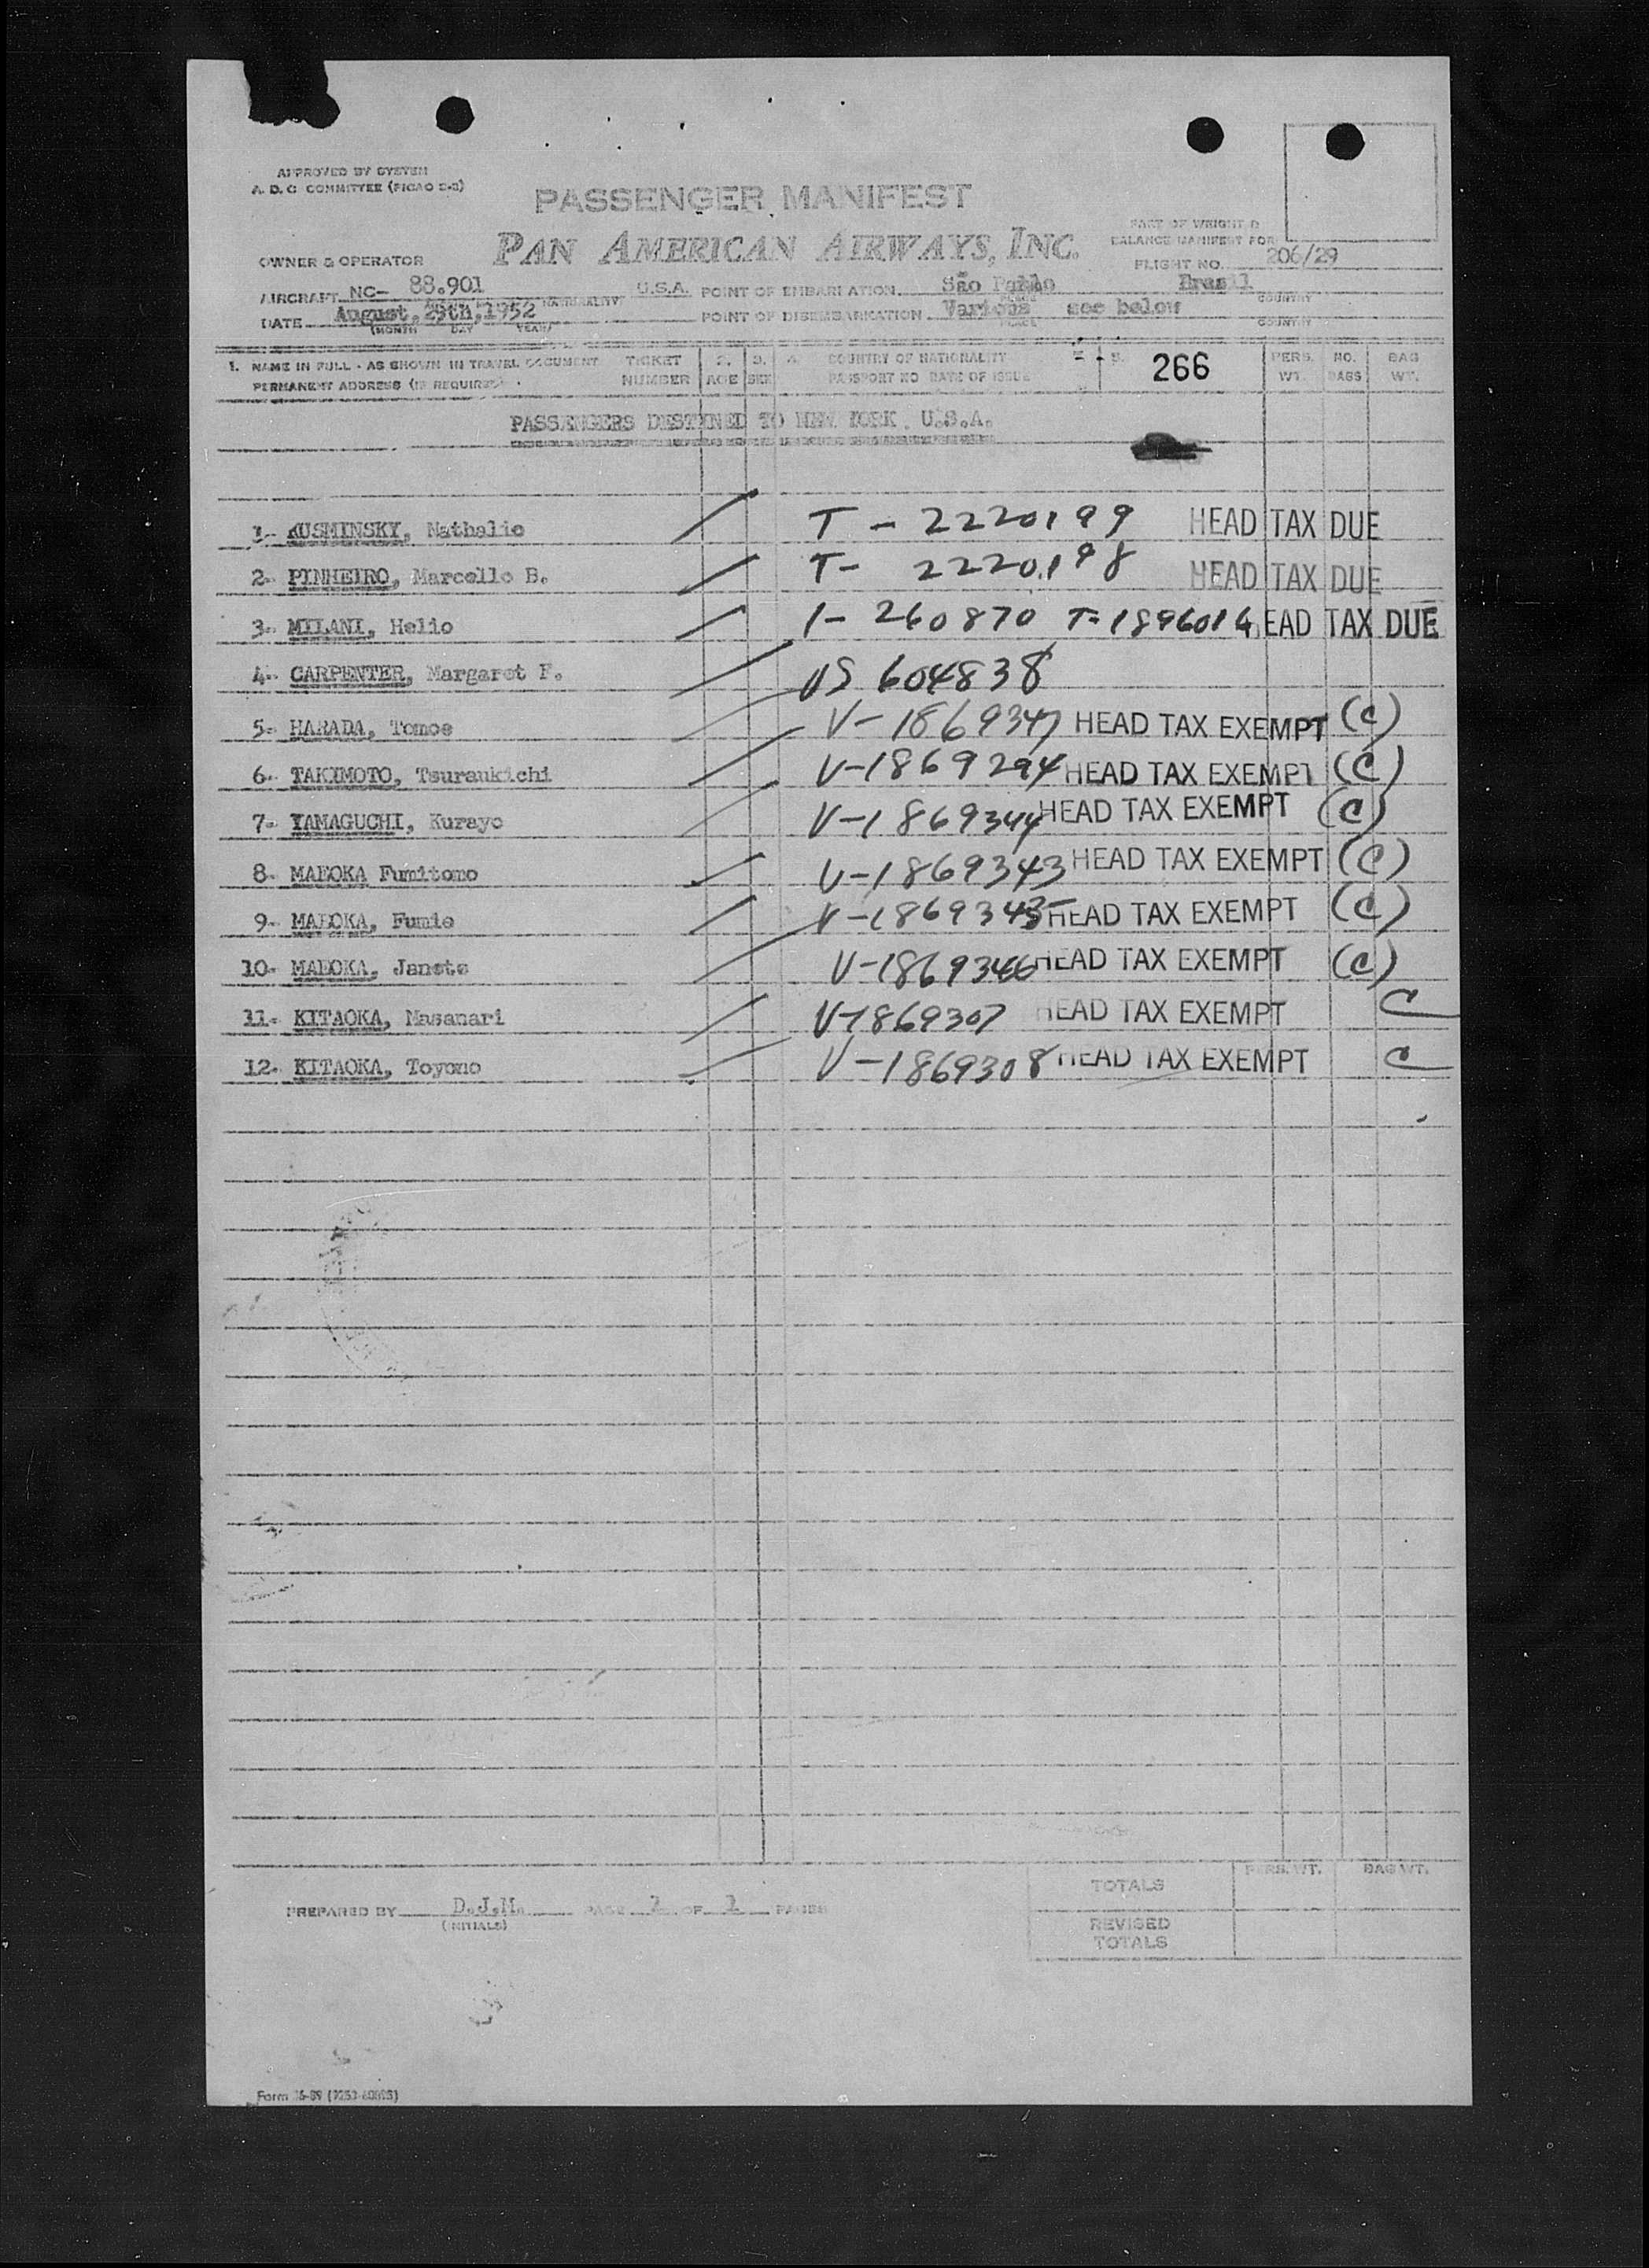 APPROVED BY SYSTEM
A. D. C COMMITTEE (PICAO E-2)
PASSENGER MANIFEST
PAN AMERICAN AIRWAYS, INC.
PART OF WEIGHT &
BALANCE MANIFEST FOR
OWNER & OPERATOR
FLIGHT NO. 206/29
AIRCRAFT NC- 88.901 NATIONALITY U.S.A. POINT OF EMBARKATION São Paulo Brasil
PLACE COUNTRY
DATE August, 29th, 1952 POINT OF DISEMBARKATION Various see below
(MONTH DAY YEAR) PLACE COUNTRY
1. NAME IN FULL - AS SHOWN IN TRAVEL DOCUMENT TICKET 2. 3. 4. COUNTRY OF NATIONALITY 5. 266 PERS. NO. BAG
PERMANENT ADDRESS (IF REQUIRED) NUMBER AGE SEX PASSPORT NO DATE OF ISSUE WT. BAGS WT.
PASSENGERS DESTINED TO NEW YORK, U.S.A.
1- KUSMINSKY, Nathalio T - 2220199 HEAD TAX DUE
2- PINHEIRO, Marcello B. T- 2220198 HEAD TAX DUE
3- MILANI, Helio 1- 260870 T-1896014 EAD TAX DUE
4- CARPENTER, Margaret F. US 604838
5- HARADA, Tomoe V-1869347 HEAD TAX EXEMPT (C)
6- TAKIMOTO, Tsuraukichi V-1869294 HEAD TAX EXEMPT (C)
7- YAMAGUCHI, Kurayo V-1869344 HEAD TAX EXEMPT (C)
8- MAEOKA Fumitomo V-1869343 HEAD TAX EXEMPT (C)
9- MAEOKA, Fumie V-1869345 HEAD TAX EXEMPT (C)
10- MAEOKA, Janete V-1869346 HEAD TAX EXEMPT (C)
11- KITAOKA, Masanari V-1869307 HEAD TAX EXEMPT C
12- KITAOKA, Toyono V-1869308 HEAD TAX EXEMPT C
PERS. WT. BAG WT.
TOTALS
PREPARED BY D.J.M. PAGE OF PAGES
(INITIALS)
REVISED
TOTALS